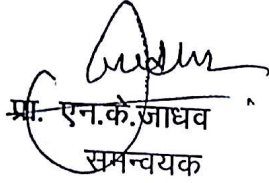 प्रा. एन.के.जाधव
समन्वयक